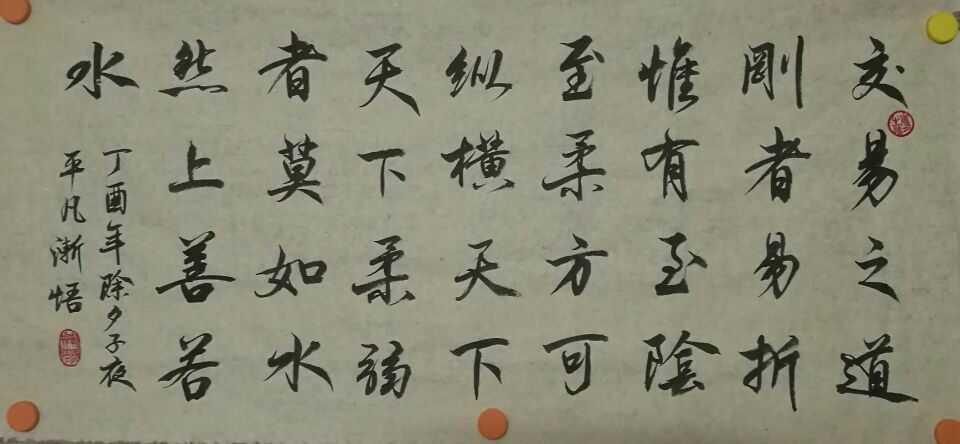 交易之道
剛者易折
惟有至陰
至柔方可
纵横天下
天下柔弱
者莫如水
然上善若
水
丁酉年除夕子夜
平凡漸悟